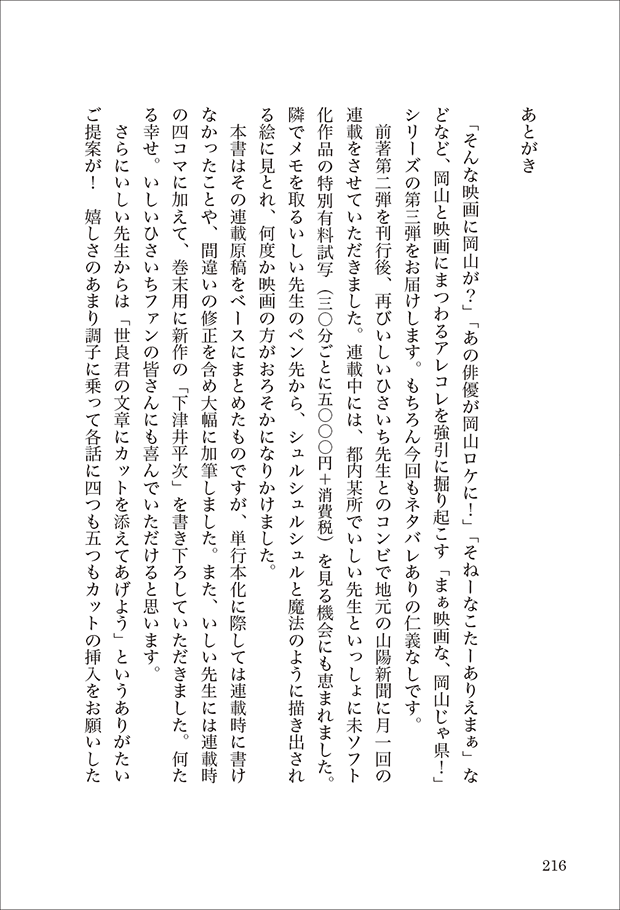 あとがき
「そんな映画に岡山が？」「あの俳優が岡山ロケに！」「そねーなこたーありえまぁ」な
どなど、岡山と映画にまつわるアレコレを強引に掘り起こす「まぁ映画な、岡山じゃ県！」
シリーズの第三弾をお届けします。もちろん今回もネタバレありの仁義なしです。
前著第二弾を刊行後、再びいしいひさいち先生とのコンビで地元の山陽新聞に月一回の
連載をさせていただきました。連載中には、都内某所でいしい先生といっしょに未ソフト
化作品の特別有料試写（三〇分ごとに五〇〇〇円＋消費税）を見る機会にも恵まれました。
隣でメモを取るいしい先生のペン先から、シュルシュルシュルと魔法のように描き出され
る絵に見とれ、何度か映画の方がおろそかになりかけました。
本書はその連載原稿をベースにまとめたものですが、単行本化に際しては連載時に書け
なかったことや、間違いの修正を含め大幅に加筆しました。また、いしい先生には連載時
の四コマに加えて、巻末用に新作の「下津井平次」を書き下ろしていただきました。何た
る幸せ。いしいひさいちファンの皆さんにも喜んでいただけると思います。
さらにいしい先生からは「世良君の文章にカットを添えてあげよう」というありがたい
ご提案が！　嬉しさのあまり調子に乗って各話に四つも五つもカットの挿入をお願いした
216